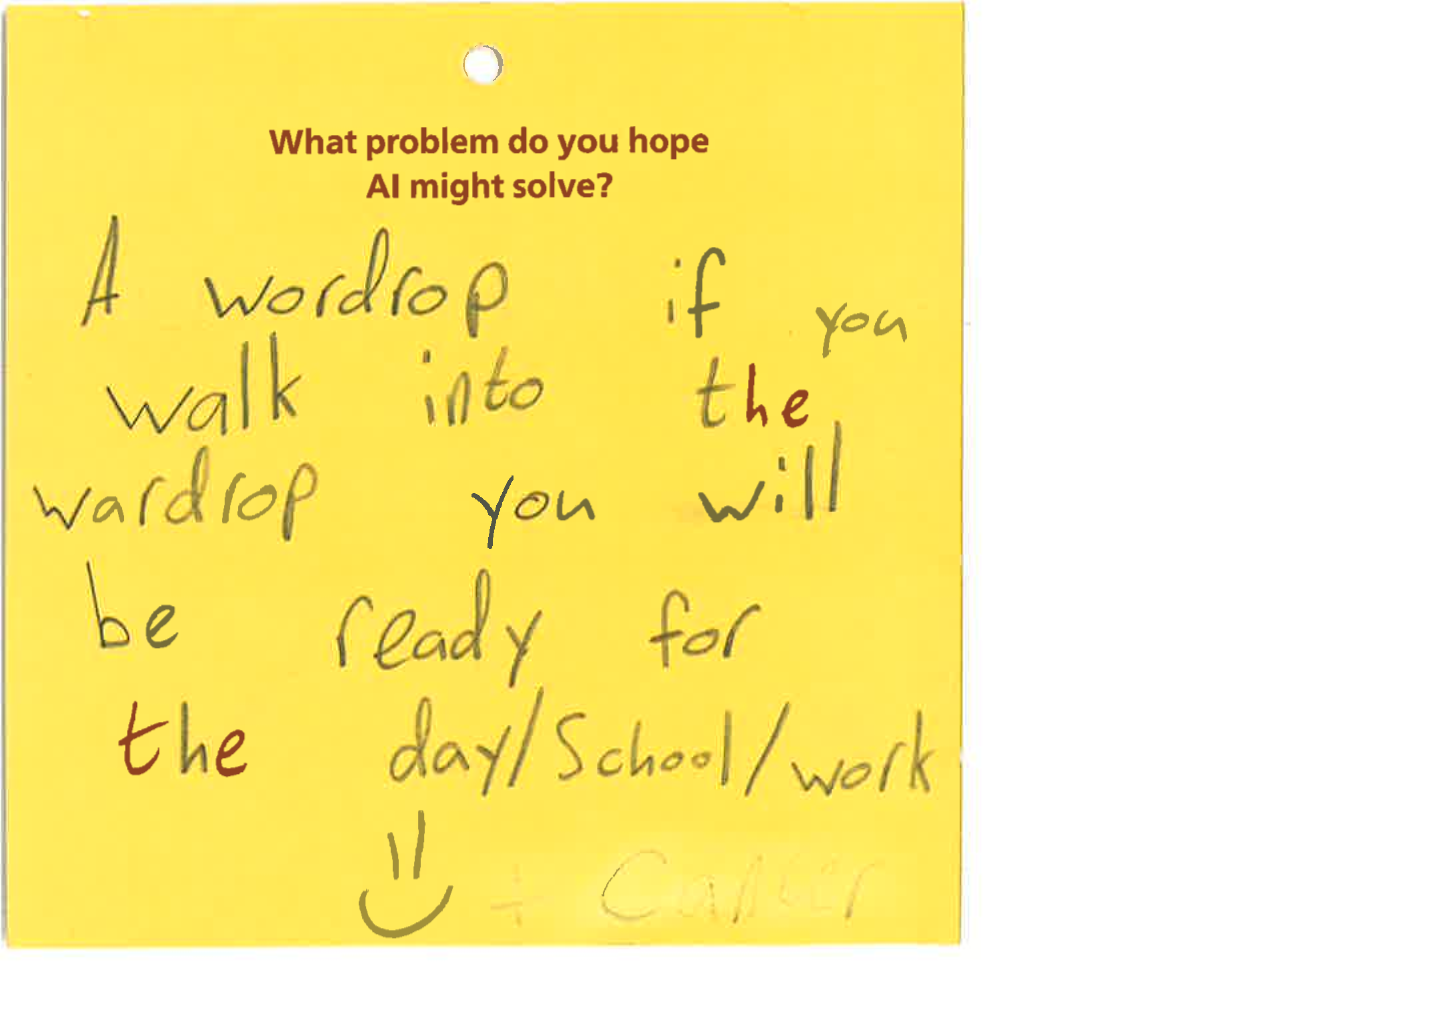 What problem do you hope
AI might solve?
A wordrop if you
walk into the
wardrop you will
be ready for
the day/School/work
+ Cancer